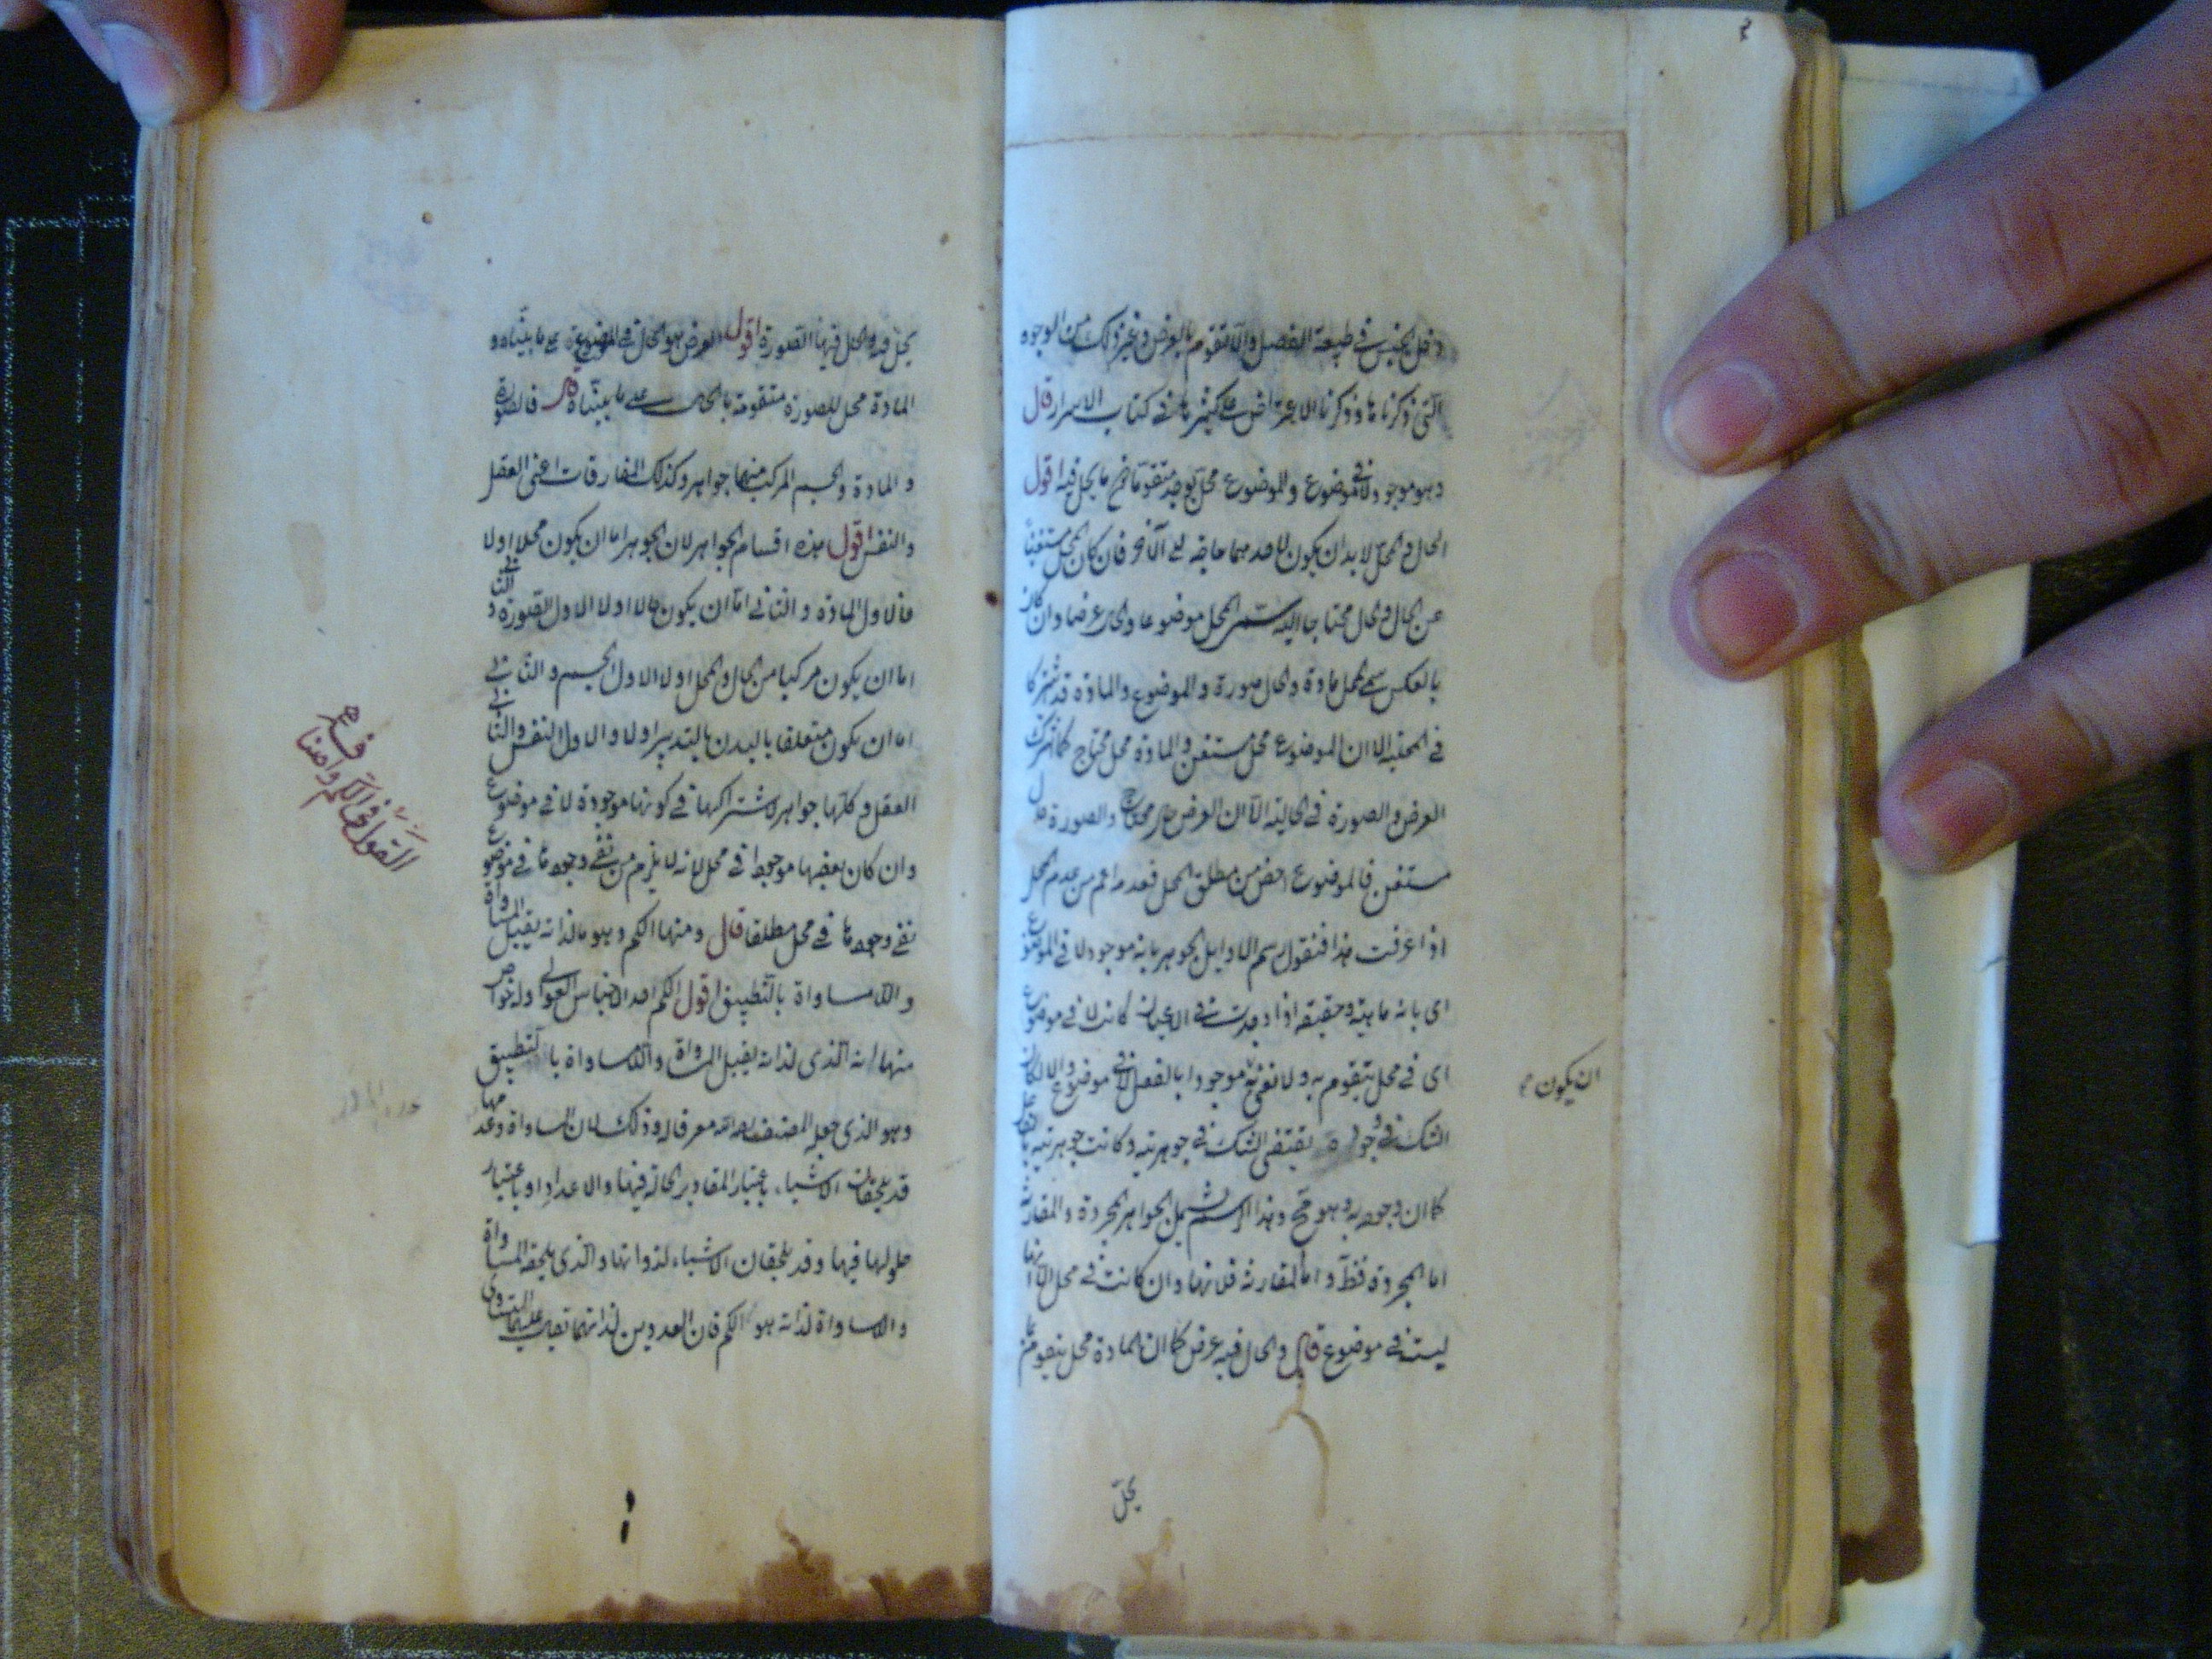 دخل الجنس في طبيعة الفصل والا لتقوم بالعرض وغير ذلك من الوجوه
التي ذكرناها وذكرنا الاعتراض على كثير منها في كتاب الاسرار قال
وهو موجود لا في موضوع والموضوع محل يوجد متقوما مع ما يحل فيه اقول
الحال والمحل لا بد ان يكون لاحدهما حاجة الى الآخر فان كان المحل مستغنيا
عن الحال والحال محتاجا اليه سمي المحل موضوعا والحال عرضا وان كان
بالعكس سمي المحل مادة والحال صورة والموضوع والمادة قد اشتركا
في المحلية الا ان الموضوع محل مستغن والمادة محل محتاج كما اشترك
العرض والصورة في الحالية الا ان العرض حال محتاج والصورة حال
مستغن فالموضوع اخص من مطلق المحل فعدمه اعم من عدم المحل
اذا عرفت هذا فنقول رسم الاوايل الجوهر بانه موجود لا في الموضوع
اى بانه ماهية وحقيقة اذا وجدت في الاعيان كانت لا في موضوع
اى في محل يتقوم به ولا نعني به موجودا بالفعل لا في موضوع والا لكان
ان يكون
الشك في وجوده يقتضي الشك في جوهريته وكانت جوهريته
كما ان وجوده به وهو مح وهذا الرسم يشمل الجواهر المجردة والمقارنة
اما المجردة فظ واما المقارنة فلانها وان كانت في محل الا انها
ليست في موضوع قال والحال فيه عرض كما ان المادة محل يتقوم بما
يحل
يحل فيه والحال فيها الصورة اقول العرض هو الحال في الموضوع على ما بيناه و
المادة محل للصورة متقومة بالحال على ما بيناه قال فالصورة
والمادة والجسم المركب منهما جواهر وكذلك المفارقات اعنى العقل
والنفس اقول هذه اقسام الجواهر لان الجوهر اما ان يكون محلا اولا
فالاول المادة والثاني اما ان يكون حالا اولا الاول الصورة والثانى
اما ان يكون مركبا من الحال والمحل اولا الاول الجسم والثانى
اما ان يكون متعلقا بالبدن بالتدبير اولا والاول النفس والثانى
العقل وكلها جواهر لاشتراكها في كونها موجودة لا في موضوع
وان كان بعضها موجودا في محل لانه لا يلزم من نفي وجودها في موضوع
نفي وجودها في محل مطلقا قال ومنها الكم وهو ما لذاته يقبل المساواة
واللامساواة بالتطبيق اقول الكم احد الاجناس العوالى وله خواص
منها انه الذى لذاته يقبل المساواة واللامساواة بالتطبيق
وهو الذى جعله المصنف رحمه الله معرفا له وذلك لان المساواة وعدمها
قد يلحقان الاشياء باعتبار المقادير الحالة فيها والاعداد او باعتبار
حلولها فيها وقد يلحقان الاشياء لذواتها والذى يلحقه المساواة
واللامساواة لذاته هو الكم فان العددين لذاتهما يصدق عليهما التساوى
القول في الكم واقسامه